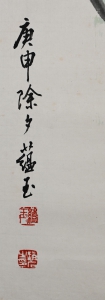 庚申除夕蕴玉